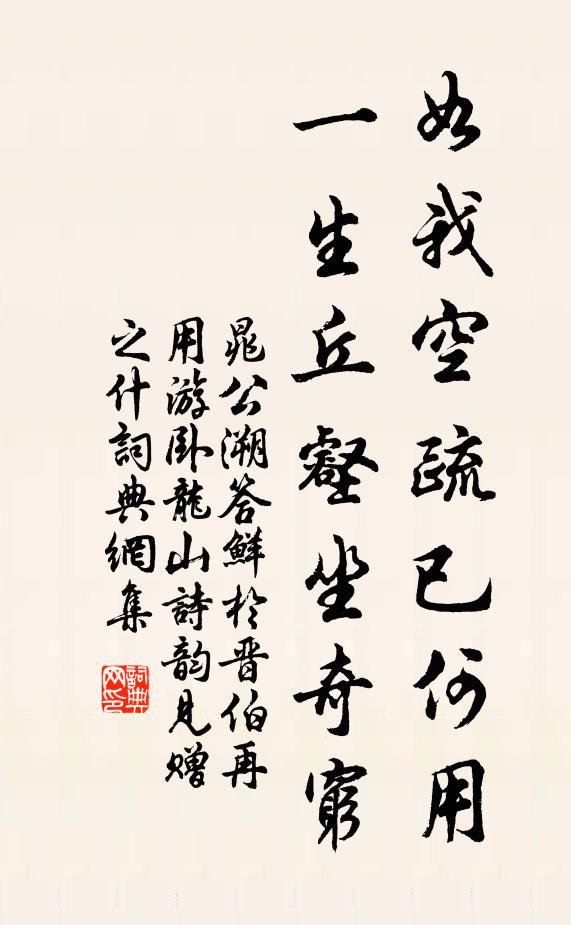 如我空疏已何用
一生丘壑坐奇窮
晁公溯答鮮於晋伯再
用游卧龍山詩韵見赠
之什詞典網集
詞典網印